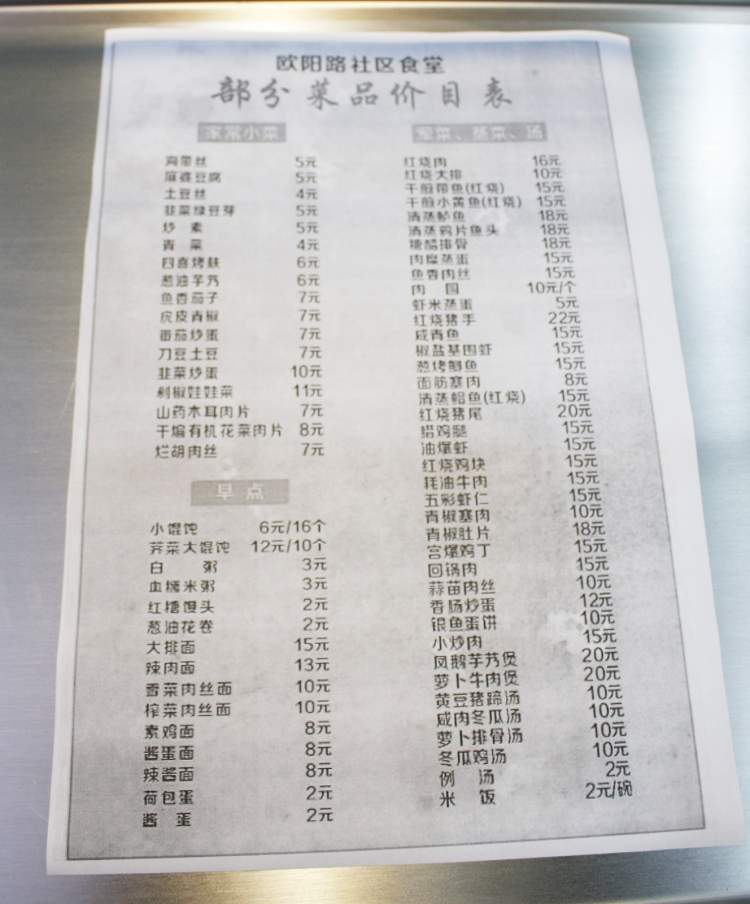 欧阳路社区食堂
部分菜品价目表
家常小菜
海带丝 5元
麻婆豆腐 5元
土豆丝 4元
韭菜绿豆芽 5元
炒 素 5元
青 菜 4元
四喜烤麸 6元
葱油芋艿 6元
鱼香茄子 7元
虎皮青椒 7元
番茄炒蛋 7元
刀豆土豆 7元
韭菜炒蛋 10元
剁椒娃娃菜 11元
山药木耳肉片 7元
干煸有机花菜肉片 8元
烂胡肉丝 7元
早 点
小馄饨 6元/16个
荠菜大馄饨 12元/10个
白 粥 3元
血糯米粥 3元
红糖馒头 2元
葱油花卷 2元
大排面 15元
辣肉面 13元
雪菜肉丝面 10元
榨菜肉丝面 10元
素鸡面 8元
酱蛋面 8元
辣酱面 8元
荷包蛋 2元
酱 蛋 2元
荤菜、蒸菜、汤
红烧肉 16元
红烧大排 10元
干煎带鱼(红烧) 15元
干煎小黄鱼(红烧) 15元
清蒸鲈鱼 18元
清蒸鸦片鱼头 18元
糖醋排骨 18元
肉糜蒸蛋 15元
鱼香肉丝 15元
肉 圆 10元/个
虾米蒸蛋 5元
红烧猪手 22元
咸青鱼 15元
椒盐基围虾 15元
葱烤鲫鱼 15元
面筋塞肉 8元
清蒸鲳鱼(红烧) 15元
红烧猪尾 20元
腊鸡腿 15元
油爆虾 15元
红烧鸡块 15元
耗油牛肉 15元
五彩虾仁 15元
青椒塞肉 10元
青椒肚片 18元
宫爆鸡丁 15元
回锅肉 15元
蒜苗肉丝 10元
香肠炒蛋 12元
银鱼蛋饼 10元
小炒肉 15元
凤鹅芋艿煲 20元
萝卜牛肉煲 20元
黄豆猪蹄汤 10元
咸肉冬瓜汤 10元
萝卜排骨汤 10元
冬瓜鸡汤 10元
例 汤 2元
米 饭 2元/碗